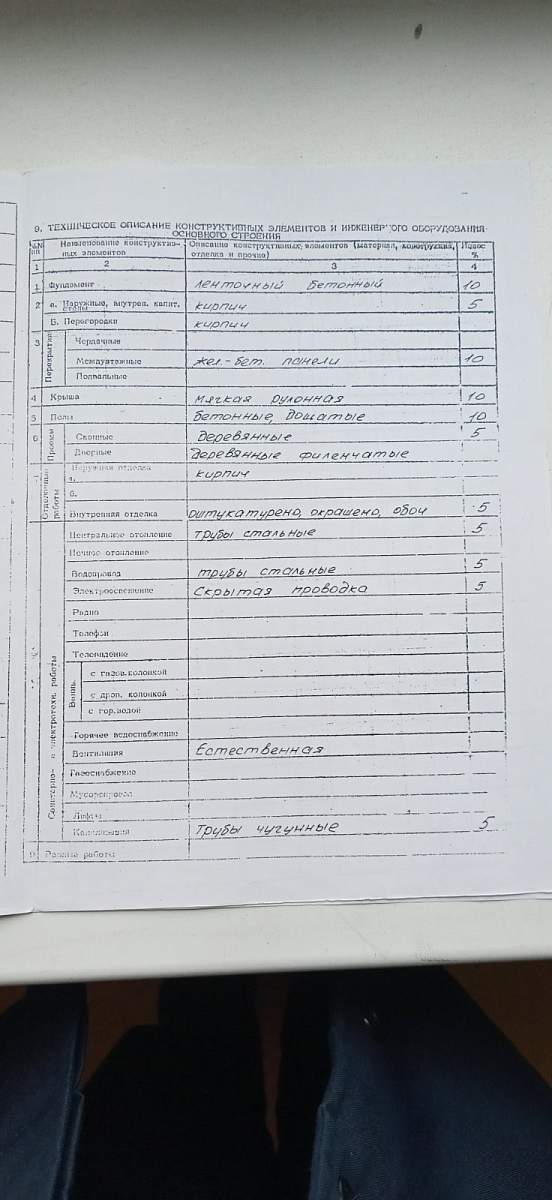 9. ТЕХНИЧЕСКОЕ ОПИСАНИЕ КОНСТРУКТИВНЫХ ЭЛЕМЕНТОВ И ИНЖЕНЕРНОГО ОБОРУДОВАНИЯ
ОСНОВНОГО СТРОЕНИЯ
№№ пп Наименование конструктив- Описание конструктивных элементов (материал, конструкция, Износ
ных элементов отделка и прочие) %
1 2 3 4
1 Фундамент ленточный бетонный 10
2 а. Наружные, внутрен. капит. стены кирпич 5
Б. Перегородки кирпич
3 Перекрытия Чердачные
Междуэтажные жел.-бет. панели 10
Подвальные
4 Крыша мягкая рулонная 10
5 Полы бетонные, дощатые 10
6 Проемы Оконные деревянные 5
Дверные деревянные филенчатые
7 Отделочные работы Наружная отделка кирпич
а.
б.
Внутренняя отделка оштукатурено, окрашено, обои 5
Центральное отопление трубы стальные 5
Печное отопление
Водопровод трубы стальные 5
Электроосвещение Скрытая проводка 5
Радио
Телефон
Телевидение
Ванны с газов. колонкой
с дров. колонкой
с гор. водой
Горячее водоснабжение
Вентиляция Естественная
Газоснабжение
Мусоропровод
Лифты
Канализация Трубы чугунные 5
Разные работы